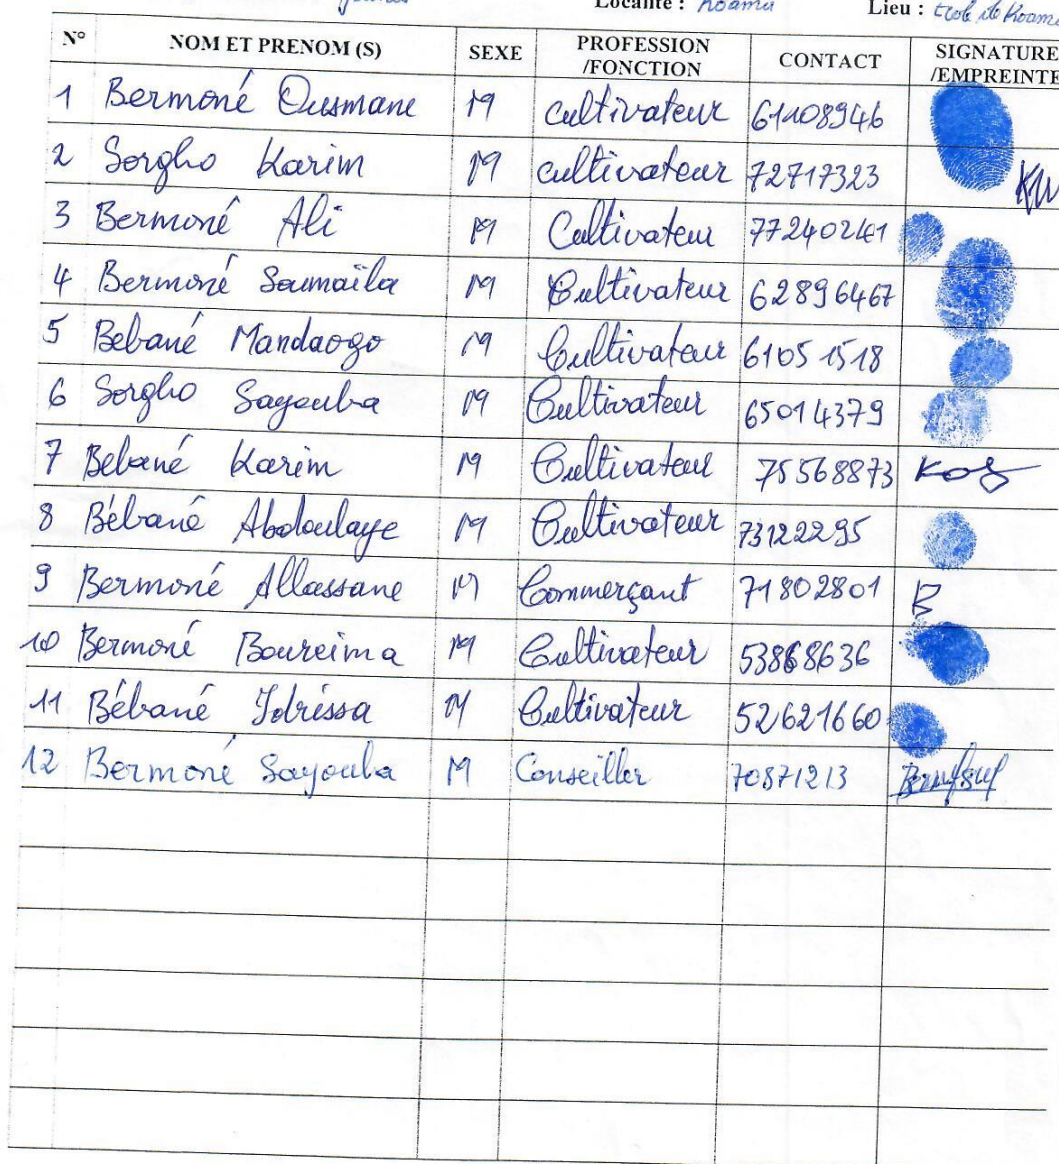 Jeunes Localité : Koama Lieu : Ecole de Koama
N° NOM ET PRENOM (S) SEXE PROFESSION /FONCTION CONTACT SIGNATURE /EMPREINTE
1 Bermoné Ousmane M cultivateur 61108946
2 Sorgho Karim M cultivateur 72717323
3 Bermoné Ali M Cultivateur 77240241
4 Bermoné Soumaïla M Cultivateur 62896467
5 Bebané Mandaogo M Cultivateur 61051518
6 Sorgho Sayouba M Cultivateur 65014379
7 Bebané Karim M Cultivateur 75568873
8 Bébané Abdoulaye M Cultivateur 73122295
9 Bermoné Allassane M Commerçant 71802801 B
10 Bermoné Boureima M Cultivateur 53868636
11 Bébané Idrissa M Cultivateur 52621660
12 Bermoné Sayouba M Conseiller 70871213